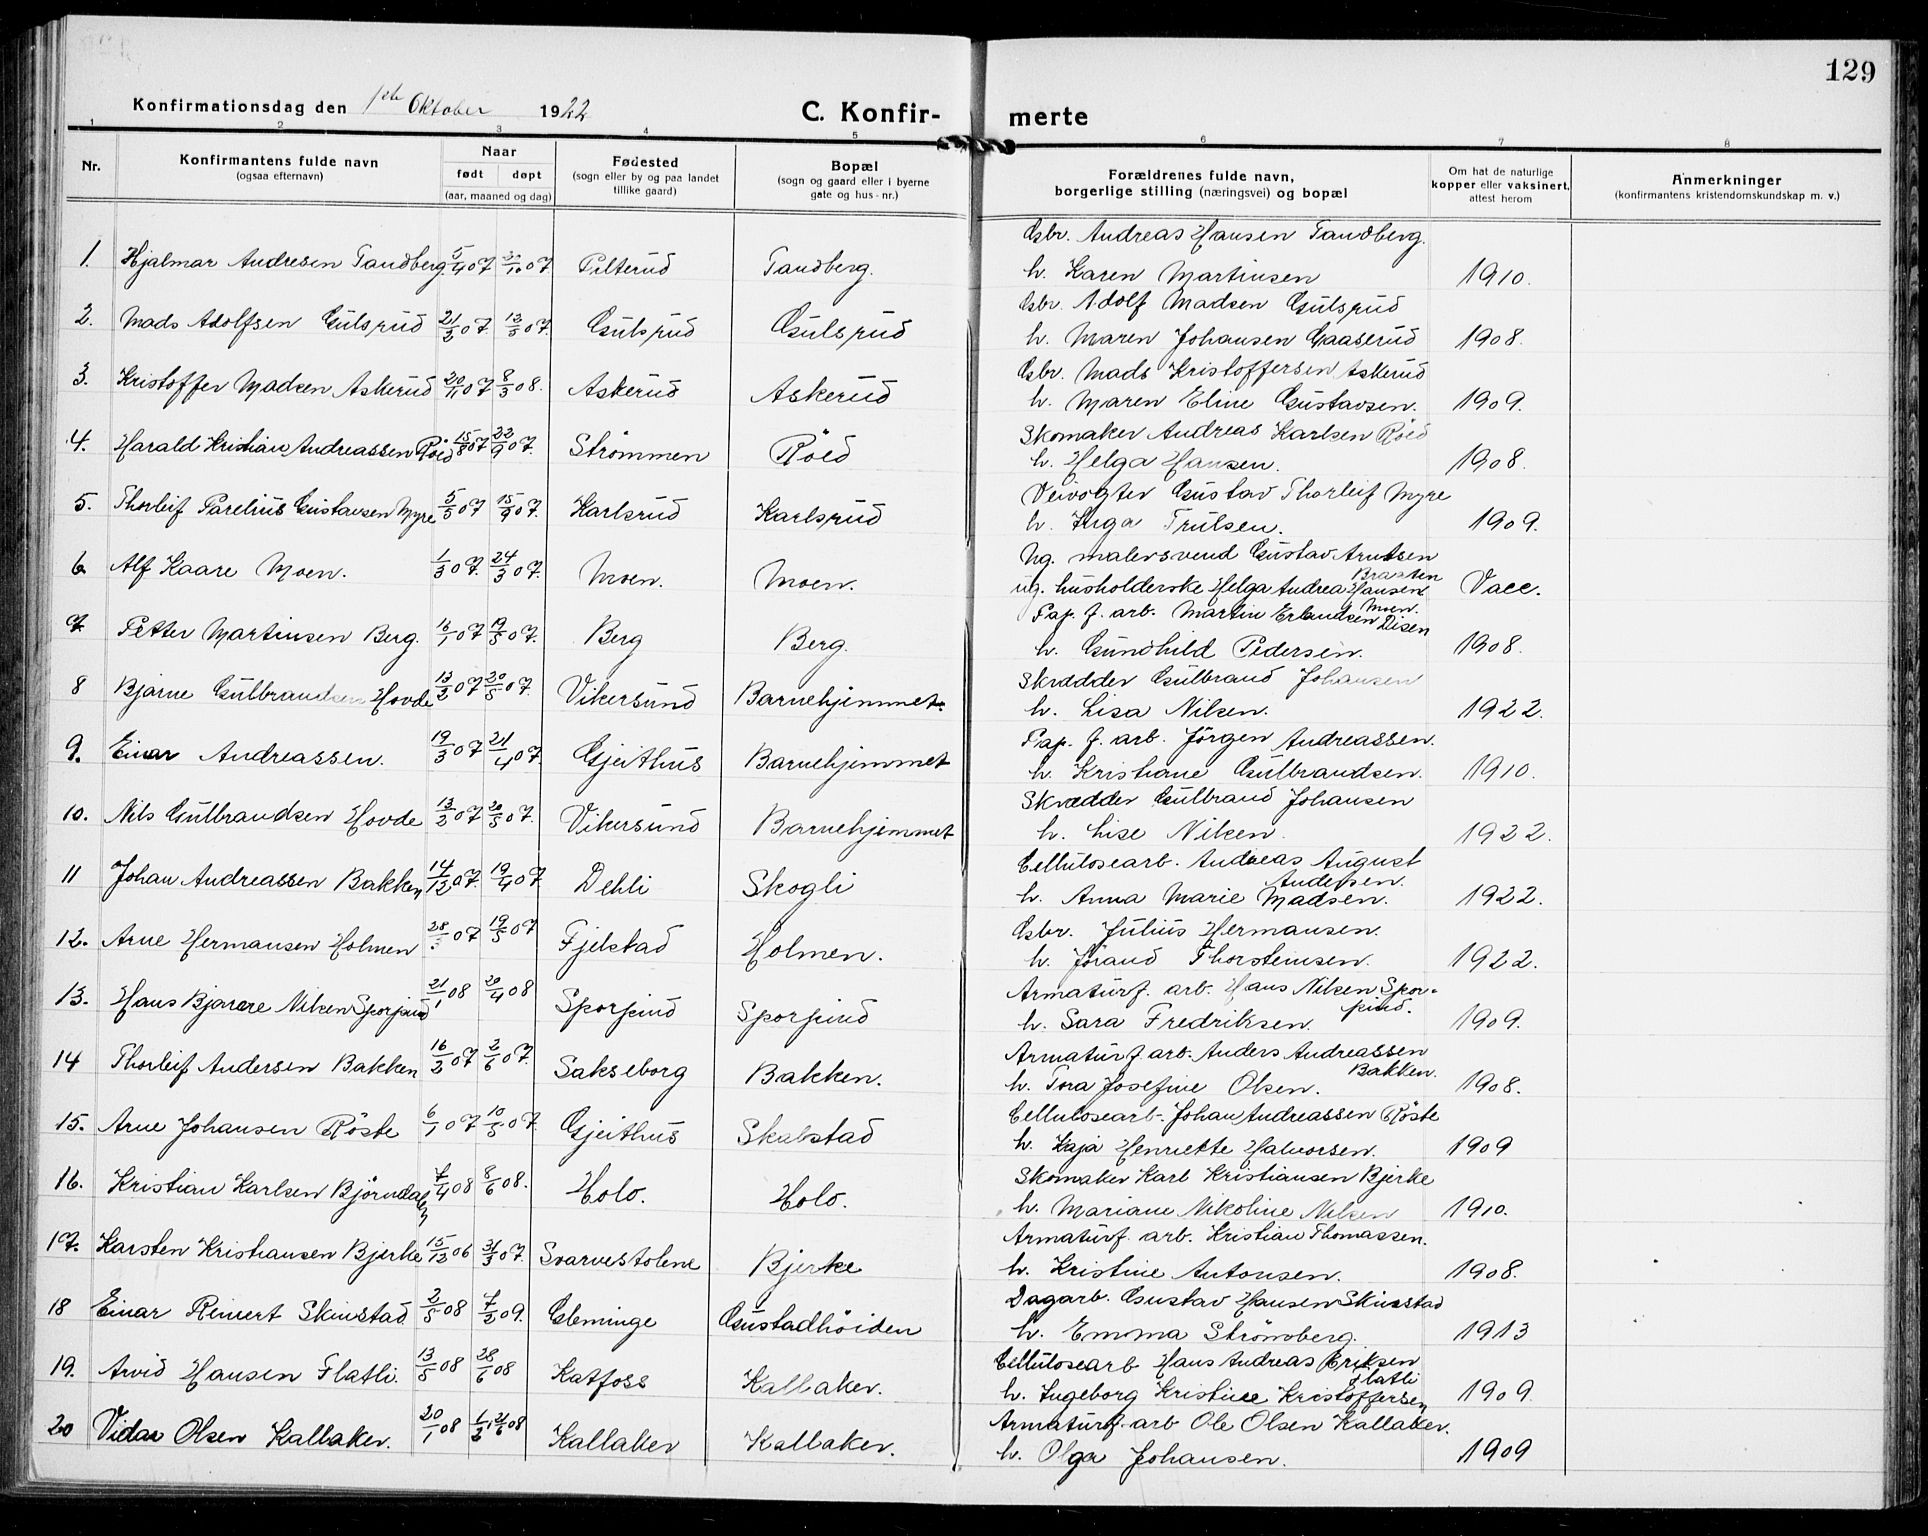 129
Konfirmationsdag den 1ste Oktober 1922 C. Konfirmerte
1 2 3 4 5 6 7 8
Nr. Konfirmantens fulde navn (ogsaa efternavn) Naar født døpt (aar, maaned og dag) Fødested (sogn eller by og paa landet tillike gaard) Bopæl (sogn og gaard eller i byerne gate og hus-nr.) Forældrenes fulde navn, borgerlige stilling (næringsvei) og bopæl Om hat de naturlige kopper eller vaksinert, attest herom Anmerkninger (konfirmantens kristendomskundskap m. v.)
Gbr. Andreas Hansen Tandberg.
1. Hjalmar Andresen Tandberg 5/4 07 Pilterud Tandberg. h. Karen Martinsen 1910.
Gbr. Adolf Madsen Gulsrud
2. Mads Adolfsen Gulsrud 21/2 07. 12/5 07. Gulsrud Gulsrud h. Maren Johansen Gaaserud 1908.
Gbr. Mads Kristoffersen Askerud
3. Kristoffer Madsen Askerud 20/11 07 8/3 08. Askerud Askerud h. Maren Eline Gustavsen. 1909.
Skomaker Andreas Karlsen Röed
4. Harald Kristian Andreassen Röed 15/8 07 22/9 07. Strömmen Röed h. Helga Hansen. 1908.
Veivogter Gustav Thorleif Myre
5. Thorleif Parelius Gustavsen Myre 5/5 07 15/9 07. Karlsrud Karlsrud h. Inga Trulsen. 1909.
Ug. malersvend Gustav Arntsen Braaten
6 Alf Kaare Moen. 1/3 07. 24/3 07. Moen. Moen. ug. husholderske Helga Andrea Hansen Moen. Vacc.
Pap. f. arb. Martin Erlandsen Disen
7. Petter Martinsen Berg. 16/1 07 19/5 07. Berg Berg. h. Gunhild Pedersen. 1908.
Skrædder Gulbrand Johansen
8 Bjarne Gulbrandsen Hovde 13/2 07 20/5 07. Vikersund Barnehjemmet. h. Lisa Nilsen. 1922.
Pap. f. arb. Jörgen Andreassen.
9. Einar Andreassen. 19/3 07 21/4 07. Gjeithus Barnehjemmet h. Kristiane Gulbrandsen. 1910.
Skrædder Gulbrand Johansen
10. Nils Gulbrandsen Hovde 13/2 07 20/5 07. Vikersund Barnehjemmet h. Lise Nilsen. 1922.
Cellulosearb. Andreas August Andersen.
11 Johan Andreassen Bakken 14/12 07. 19/4 07 Dehli Skogli h. Anna Marie Madsen. 1922.
Gbr. Julius Hermansen.
12. Arne Hermansen Holmen 07 19/5 07 Fjelstad Holmen. h. Jörand Thorsteinsen. 1922.
Armaturf. arb. Hans Nilsen Sporpind.
13. Hans Bjarne Nilsen Sporpind 21/1 08 20/4 08 Sporpind Sporpind h. Sara Fredriksen. 1909.
Armaturf arb. Anders Andreassen Bakken.
14 Thorleif Andersen Bakken 16/2 07 2/6 07. Sakseborg Bakken. h. Tora Josefine Olsen. 1908.
Cellulosearb. Johan Andreassen Röste
15. Arne Johansen Röste 6/1 07 10/5 07. Gjeithus Skalstad h. Kaja Henriette Halvorsen. 1909
Skomaker Karl Kristiansen Bjerke
16. Kristian Karlsen Björndalen 7/4 08 8/6 08. Holo. Holo. h. Mariane Nikoline Nilsen 1910.
Armaturf. arb. Kristian Thomassen.
17. Karsten Kristiansen Bjerke 15/12 06 31/3 07. Svarvestolene Bjerke h. Kristine Antonsen. 1908.
Dagarb. Gustav Hansen Skinstad
18 Einar Reinert Skinstad 2/5 08 7/2 09. Gleminge Gustadhöiden h. Emma Strömberg. 1913
Cellulosearb Hans Andreas Eriksen Flatli
19. Arvid Hansen Flatli. 13/5 08 28/6 08 Katfoss Kallaker. h. Ingeborg Kristine Kristoffersen 1909.
Armaturf. arb Ole Olsen Kallaker.
20 Vidar Olsen Kallaker. 20/1 08 Kallaker Kallaker. h. Olga Johansen. 1909